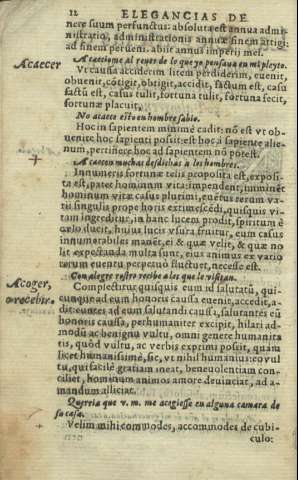 12 ELEGANCIAS DE
nere suum perfunctus: absoluta est annua admi-
nistratio, administrationis annuæ finem attigi:
ad finem perueni. abiit annus imperij mei.
Acaecer
Acaeciome al reues de lo que yo pensaua en mi pleyto.
Vt causa acciderim litem perdiderim, euenit,
obuenit, cõtigit, obtigit, accidit, factum est, casu
factũ est, casus tulit, fortuna tulit, fortuna fecit,
fortunæ placuit.
No acaece esto en hombre sabio.
Hoc in sapientem minimè cadit: nõ est vt ob-
uenite hoc sapienti possit: est hoc à sapiente alie-
num, pertinere hoc ad sapientem nõ potest.
Acaecen muchas desdichas a los hombres.
Innumeris fortunæ telis proposita est, exposi-
ta est, patet hominum vita: impendent, imminẽt
hominum vitæ casus plurimi, euẽtus rerum va-
rij: singulis propè horis extimescẽdi, quisquis vi-
tam ingreditur, in hanc lucem prodit, spiritum è
cælo ducit, huius lucis vsura fruitur, eum casus
innumerabiles manẽt, ei & quæ velit, & quæ no
lit expectanda multa sunt, eius animus ex vario
rerum euentu perpetuò fluctuet, necesse est.
Acoger,
o recebir.
Con alegre rostro recibe a los que le visitan.
Complectitur quisquis eum id salutatũ, qui-
cunque ad eum honoris caussa euenit, accedit, a-
dit: euntes ad eum salutandi caussa, salutantes eũ
honoris caussa, perhumaniter excipit, hilari ad-
modũ ac benigno vultu, omni genere humanita
tis, quòd vultu, ac verbis exprimi possit, quàm
licet humanissimè, sic, vt nihil humaniùs eo vul
tu, qui facilè gratiam ineat, beneuolentiam con-
ciliet, hominum animos amore deuinciat, ad a-
mandum alliciat.
Querria que v. m. me acogiesse en alguna camara de
su casa.
Velim mihi commodes, accommodes de cubi-
culo: